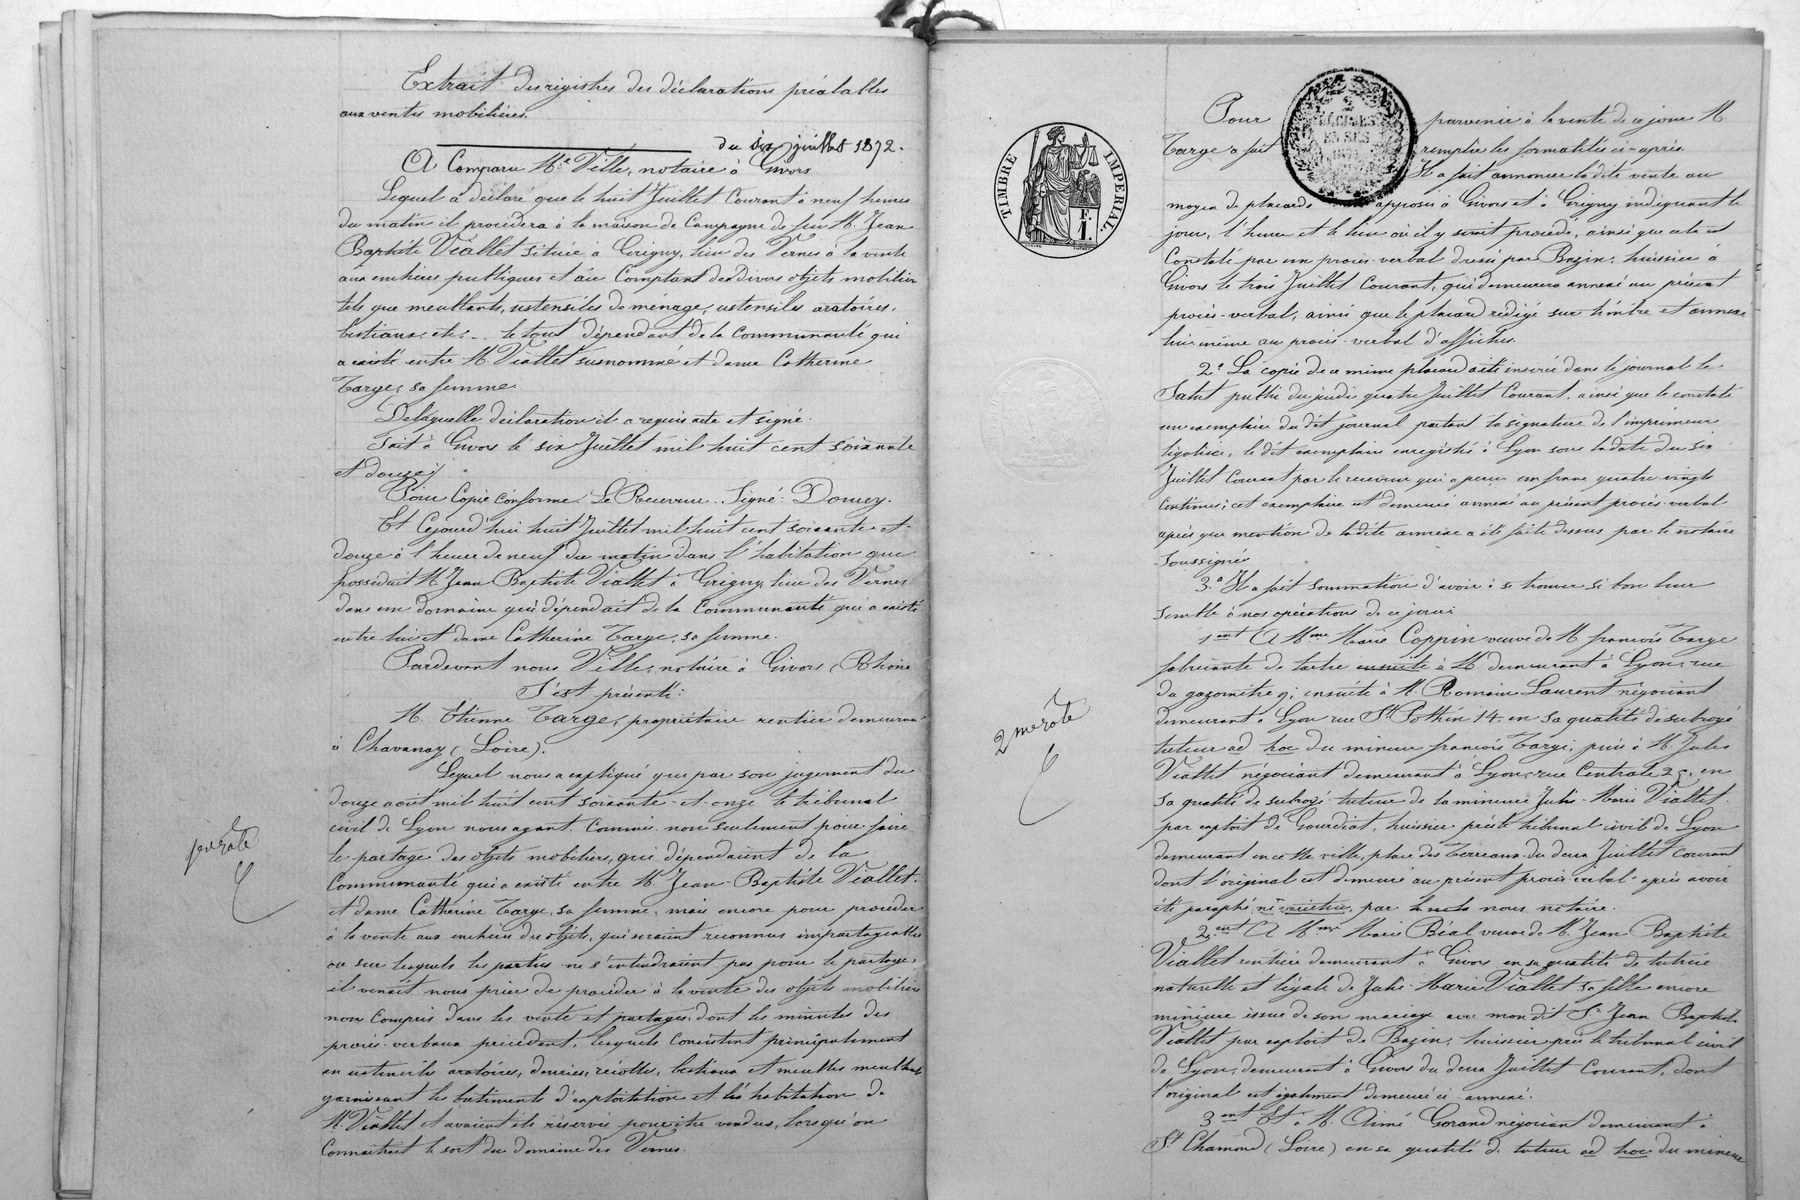 Extrait des registres des déclarations préalables
aux ventes mobilières.
du six juillet 1872.
A Comparu Me Ville, notaire à Givors
Lequel a déclaré que le huit Juillet Courant à neuf heures
du matin il procédera à la maison de Campagne de feu M. Jean
Baptiste Viallet située à Grigny, lieu des Vernes à la vente
aux enchères publiques et au Comptant des divers objets mobiliers
tels que meublants, ustensiles de ménage, ustensiles aratoires,
bestiaux etc. le tout dépendant de la Communauté qui
a existé entre M. Viallet susnommé et dame Catherine
Targe, sa femme
De laquelle déclaration il a requis acte et signé.
Fait à Givors le six Juillet mil huit cent soixante
et douze
Pour Copie Conforme. Le Receveur. Signé: Doucey.
Et Cejourd'hui huit Juillet mil huit cent soixante et
douze à l'heure de neuf du matin dans l'habitation que
possédait M Jean Baptiste Viallet à Grigny, lieu des Vernes
dans un domaine qui dépendait de la Communauté qui a existé
entre lui et dame Catherine Targe, sa femme.
Pardevant nous Ville, notaire à Givors (Rhône
S'est présenté:
M. Etienne Targe, propriétaire rentier demeurant
à Chavanay (Loire).
Lequel nous a expliqué que par son jugement du
douze août mil huit cent soixante-et-onze le tribunal
civil de Lyon nous ayant Commis non seulement pour faire
le partage des objets mobiliers, qui dépendaient de la
Communauté qui a existé entre M Jean-Baptiste Viallet
et dame Catherine Targe, sa femme, mais encore pour procéder
à la vente aux enchères des objets, qui seraient reconnus impartageables
ou sur lesquels les parties ne s'entendraient pas pour le partage,
il venait nous prier de procéder à la vente des objets mobiliers
non Compris dans les vente et partages, dont les minutes des
procès-verbaux précèdent, lesquels Consistent principalement
en ustensiles aratoires, denrées, récoltes, bestiaux et meubles meublants
garnissant les bâtiments d'exploitation et l'habitation de
M. Viallet et avaient été réservés pour être vendus, lorsqu'on
Connaitrait le sort du domaine des Vernes.
1er rôle
TIMBRE IMPERIAL.
F.
1.
Pour parvenir à la vente de ce jour M.
Targe a fait remplir les formalités ci-après
Il a fait annoncer la dite vente au
moyen de placards apposés à Givors et à Grigny indiquant le
jour, l'heure et le lieu où il y serait procédé, ainsi que cela est
Constaté par un procès-verbal dressé par Bazin, huissier à
Givors le trois Juillet Courant, qui demeurera annexé au présent
procès-verbal, ainsi que le placard rédigé sur timbre et annexé
lui-même au procès-verbal d'affiches.
2° La copie de ce même placard a été insérée dans le journal le
Salut public du jeudi quatre Juillet Courant, ainsi que le constate
un exemplaire du dit journal portant la signature de l'imprimeur
légalisée, le dit exemplaire enregistré à Lyon sous la date du six
Juillet Courant par le receveur qui a perçu un franc quatre-vingts
Centimes; cet exemplaire est demeuré annexé au présent procès-verbal
après que mention de la dite annexe a été faite dessus par le notaire
soussigné
3° Il a fait sommation d'avoir à se trouver si bon leur
semble à nos opérations de ce jour:
1ent A Mme Marie Coppin veuve de M françois Targe
fabricante de tartre ensuite à M demeurant à Lyon, rue
du gazomètre 9; ensuite à M. Romain Laurent négociant
demeurant à Lyon rue St Pothin 14, en sa qualité de subrogé
tuteur ad hoc du mineur françois Targe; puis à M. Jules
Viallet négociant demeurant à Lyon, rue Centrale 25, en
sa qualité de subrogé-tuteur de la mineure Julie-Marie Viallet,
par exploit de Gourdiat, huissier près le tribunal civil de Lyon
demeurant en cette ville, place des Terreaux du deux Juillet courant
dont l'original est demeuré au présent procès-verbal après avoir
été paraphé ne varietur, par nous notaire.
2ent A Mme Marie Béal veuve de M. Jean Baptiste
Viallet rentière demeurant à Givors en sa qualité de tutrice
naturelle et légale de Julie-Marie Viallet sa fille encore
mineure issue de son mariage avec mon dit Sr Jean Baptiste
Viallet par exploit de Bazin, huissier près le tribunal civil
de Lyon, demeurant à Givors du deux Juillet Courant, dont
l'original est également demeuré ci-annexé.
3ent Et à M. Aimé Gorand négociant demeurant à
St Chamond (Loire) en sa qualité de tuteur ad hoc du mineur
2me rôle